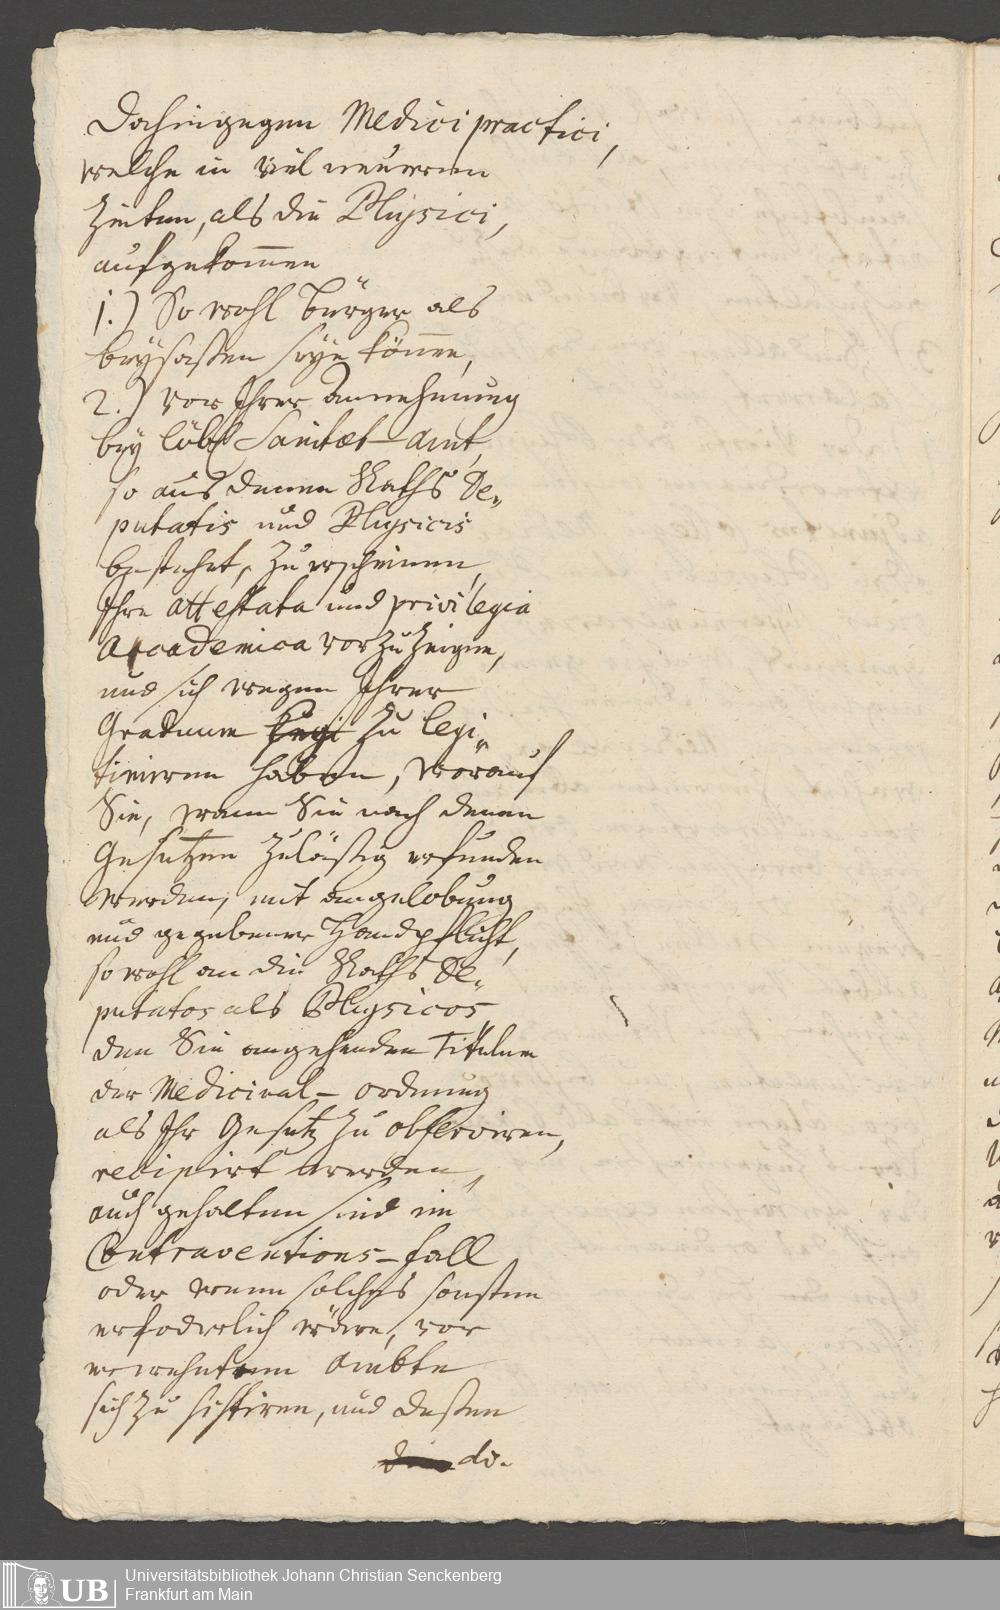 Dahingegen Medici practici,
welche in viel neueren
Zeiten, als die Physici,
aufgekom̅en
1.) So wohl bürger als
beysaßen seyn kön̅en,
2.) vor Ihrer annehmung
bey löbl Sanitæt-amt,
so aus denen Raths De„
putatis und Physicis
bestehet, zu erscheinen,
Ihre attestata und privilegia
academica vorzuZeigen,
und sich wegen Ihrer
Graduum Legi zu legi„
timiren haben, worauf
Sie, wann Sie nach denen
Gesetzen Zuläßig erfunden
werden, mit angelobung
und gegebener Handpflicht,
so wohl an die Raths De„
putatos als Physicos
den Sie angehenden Titulum
der Medicinal-ordnung
als Ihr Gesetz zu observiren,
recipirt werden,
auch gehalten sind im
Contraventions-fall
oder wenn solches sonsten
erfoderlich wäre, vor
erwehntem ambte
sich zu sistiren, und deßen
di-
Universitätsbibliothek Johann Christian Senckenberg
Frankfurt am Main
UB